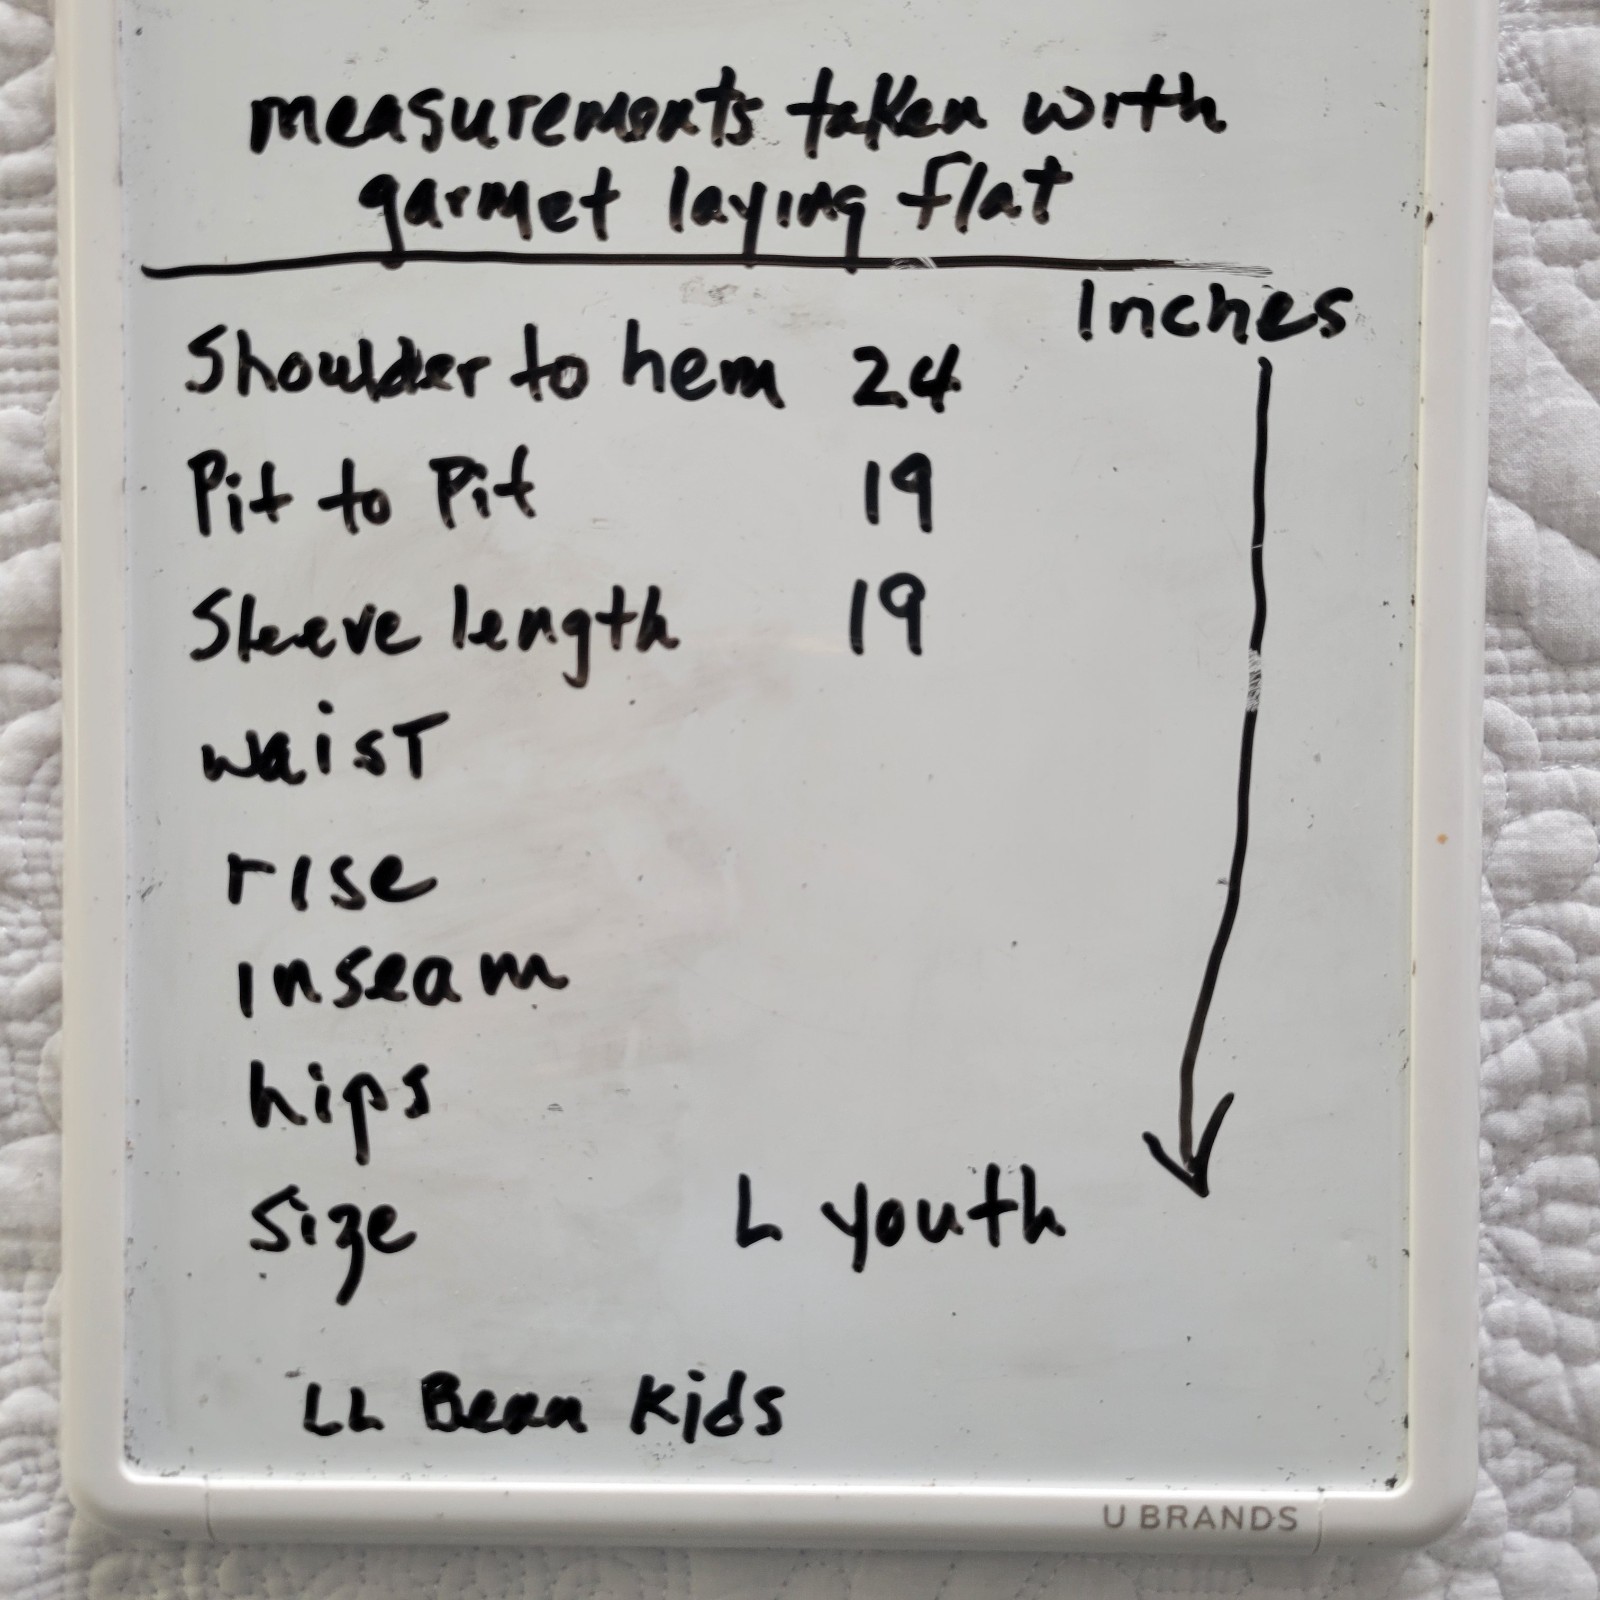 measurements taken with
garmet laying flat
Inches
Shoulder to hem 24
Pit to Pit 19
Sleeve length 19
waist
rise
inseam
hips
size L youth
LL Bean Kids
U BRANDS